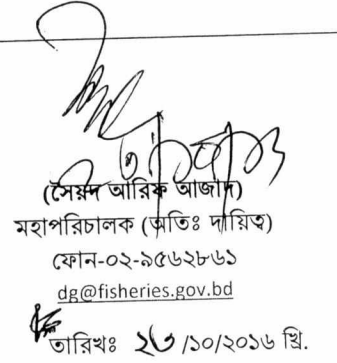 (সৈয়দ আরিফ আজাদ)
মহাপরিচালক (অতিঃ দায়িত্ব)
ফোন-০২-৯৫৬২৮৬১
dg@fisheries.gov.bd
তারিখঃ /১০/২০১৬ খ্রি.